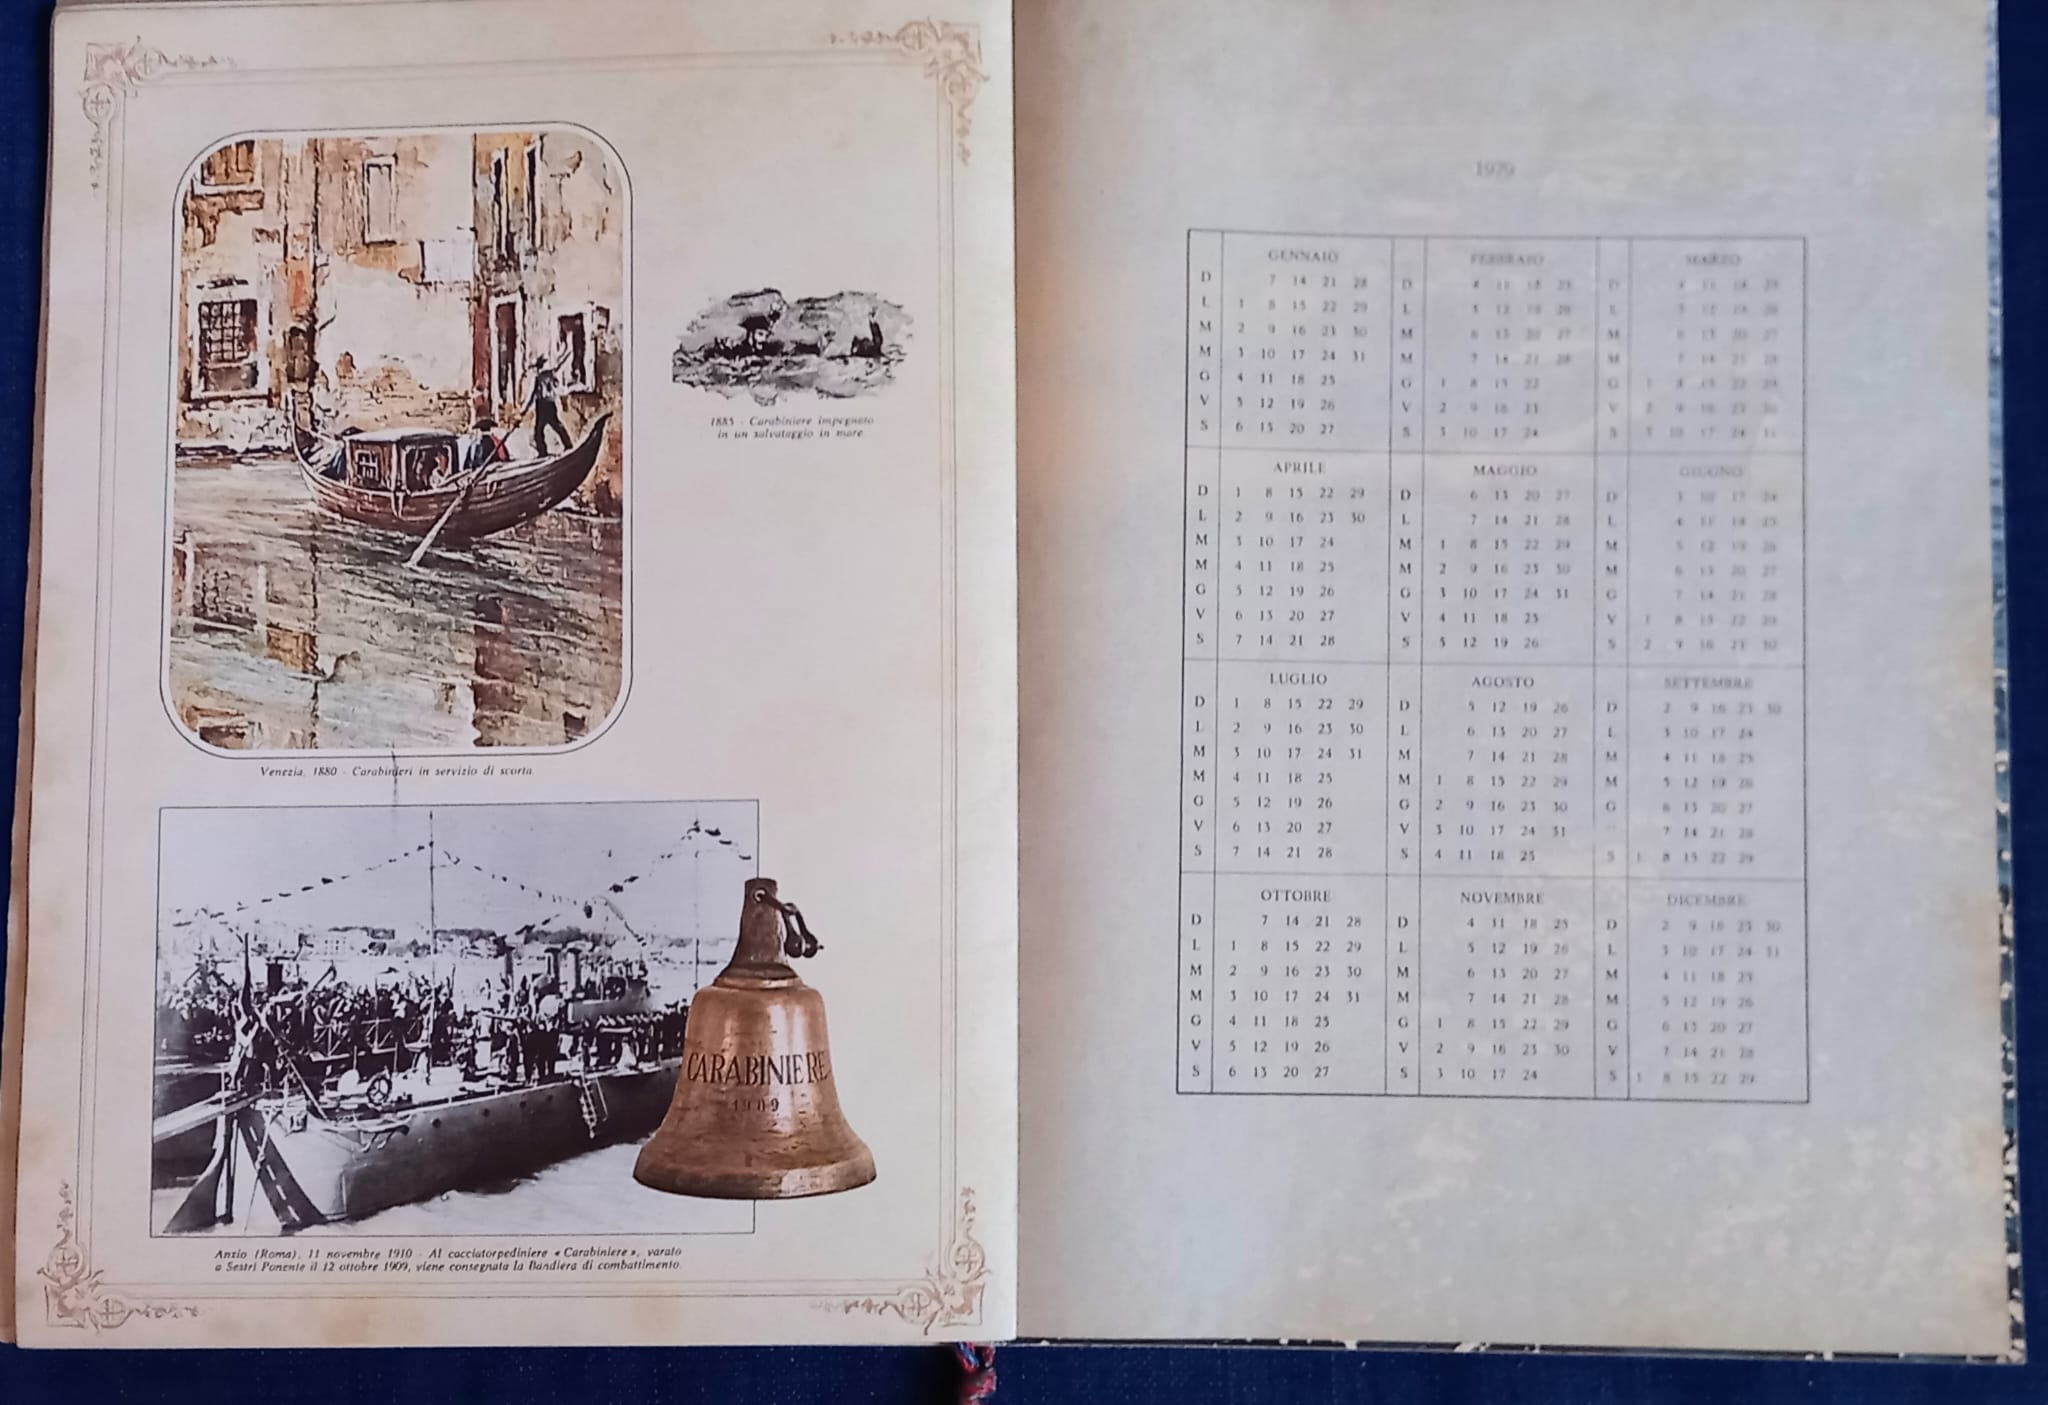 Venezia, 1880 - Carabinieri in servizio di scorta.
1885 - Carabiniere impegnato
in un salvataggio in mare.
CARABINIERE
1909
Anzio (Roma), 11 novembre 1910 - Al cacciatorpediniere « Carabiniere », varato
a Sestri Ponente il 12 ottobre 1909, viene consegnata la Bandiera di combattimento.
1979
GENNAIO
D 7 14 21 28
L 1 8 15 22 29
M 2 9 16 23 30
M 3 10 17 24 31
G 4 11 18 25
V 5 12 19 26
S 6 13 20 27
FEBBRAIO
D 4 11 18 25
L 5 12 19 26
M 6 13 20 27
M 7 14 21 28
G 1 8 15 22
V 2 9 16 23
S 3 10 17 24
MARZO
D 4 11 18 25
L 5 12 19 26
M 6 13 20 27
M 7 14 21 28
G 1 8 15 22 29
V 2 9 16 23 30
S 3 10 17 24 31
APRILE
D 1 8 15 22 29
L 2 9 16 23 30
M 3 10 17 24
M 4 11 18 25
G 5 12 19 26
V 6 13 20 27
S 7 14 21 28
MAGGIO
D 6 13 20 27
L 7 14 21 28
M 1 8 15 22 29
M 2 9 16 23 30
G 3 10 17 24 31
V 4 11 18 25
S 5 12 19 26
GIUGNO
D 3 10 17 24
L 4 11 18 25
M 5 12 19 26
M 6 13 20 27
G 7 14 21 28
V 1 8 15 22 29
S 2 9 16 23 30
LUGLIO
D 1 8 15 22 29
L 2 9 16 23 30
M 3 10 17 24 31
M 4 11 18 25
G 5 12 19 26
V 6 13 20 27
S 7 14 21 28
AGOSTO
D 5 12 19 26
L 6 13 20 27
M 7 14 21 28
M 1 8 15 22 29
G 2 9 16 23 30
V 3 10 17 24 31
S 4 11 18 25
SETTEMBRE
D 2 9 16 23 30
L 3 10 17 24
M 4 11 18 25
M 5 12 19 26
G 6 13 20 27
7 14 21 28
S 1 8 15 22 29
OTTOBRE
D 7 14 21 28
L 1 8 15 22 29
M 2 9 16 23 30
M 3 10 17 24 31
G 4 11 18 25
V 5 12 19 26
S 6 13 20 27
NOVEMBRE
D 4 11 18 25
L 5 12 19 26
M 6 13 20 27
M 7 14 21 28
G 1 8 15 22 29
V 2 9 16 23 30
S 3 10 17 24
DICEMBRE
D 2 9 16 23 30
L 3 10 17 24 31
M 4 11 18 25
M 5 12 19 26
G 6 13 20 27
V 7 14 21 28
S 1 8 15 22 29